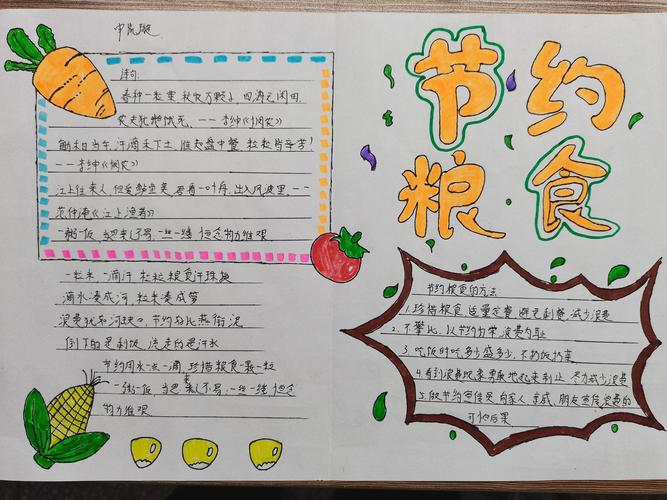 诗句:
春种一粒粟,秋收万颗子,四海无闲田,
农夫犹饿死。——李绅《悯农》
锄禾日当午,汗滴禾下土,谁知盘中餐,粒粒皆辛苦!
——李绅《悯农》
江上往来人,但爱鲈鱼美,君看一叶舟,出入风波里,——
范仲淹《江上渔者》
一粥一饭,当思来之不易,一丝一缕,恒念物力维艰
一粒米 一滴汗,粒粒粮食汗珠换
滴水凑成河,粒米凑成箩
浪费犹如河决口,节约好比燕衔泥
倒下的是剩饭 流走的是汗水
节约用水一点一滴,珍惜粮食一颗一粒
一粥一饭,当思来之不易;一丝一缕 恒念
物力维艰
节约
粮食
节约粮食的方法:
1.珍惜粮食,适量定餐,避免剩餐,减少浪费
2.不攀比,以节约为荣,浪费为耻
3.吃饭时吃多少盛多少,不扔饭扔菜
4.看到浪费现象勇敢地起来制止,尽力减少浪费
5.做节约宣传员,向家人、亲戚、朋友宣传浪费的
可怕后果